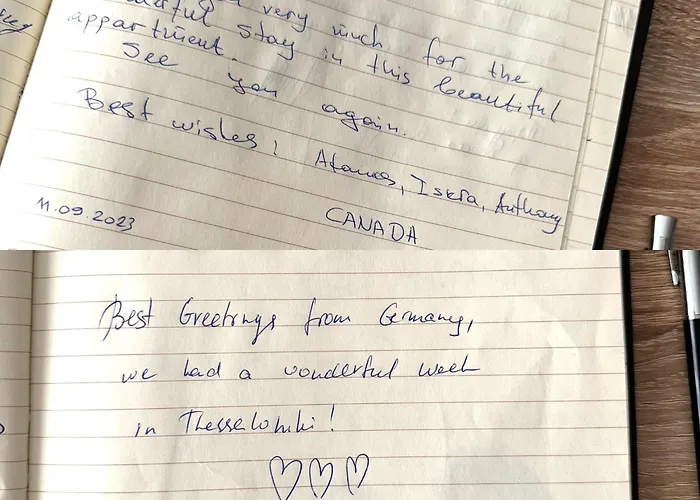 very much for the
stay in this beautiful
appartment.
See you again.
Best wishes, Atanas, Iskra, Anthony
11.09.2023
CANADA
Best Greetings from Germany,
we had a wonderful week
in Thessaloniki!